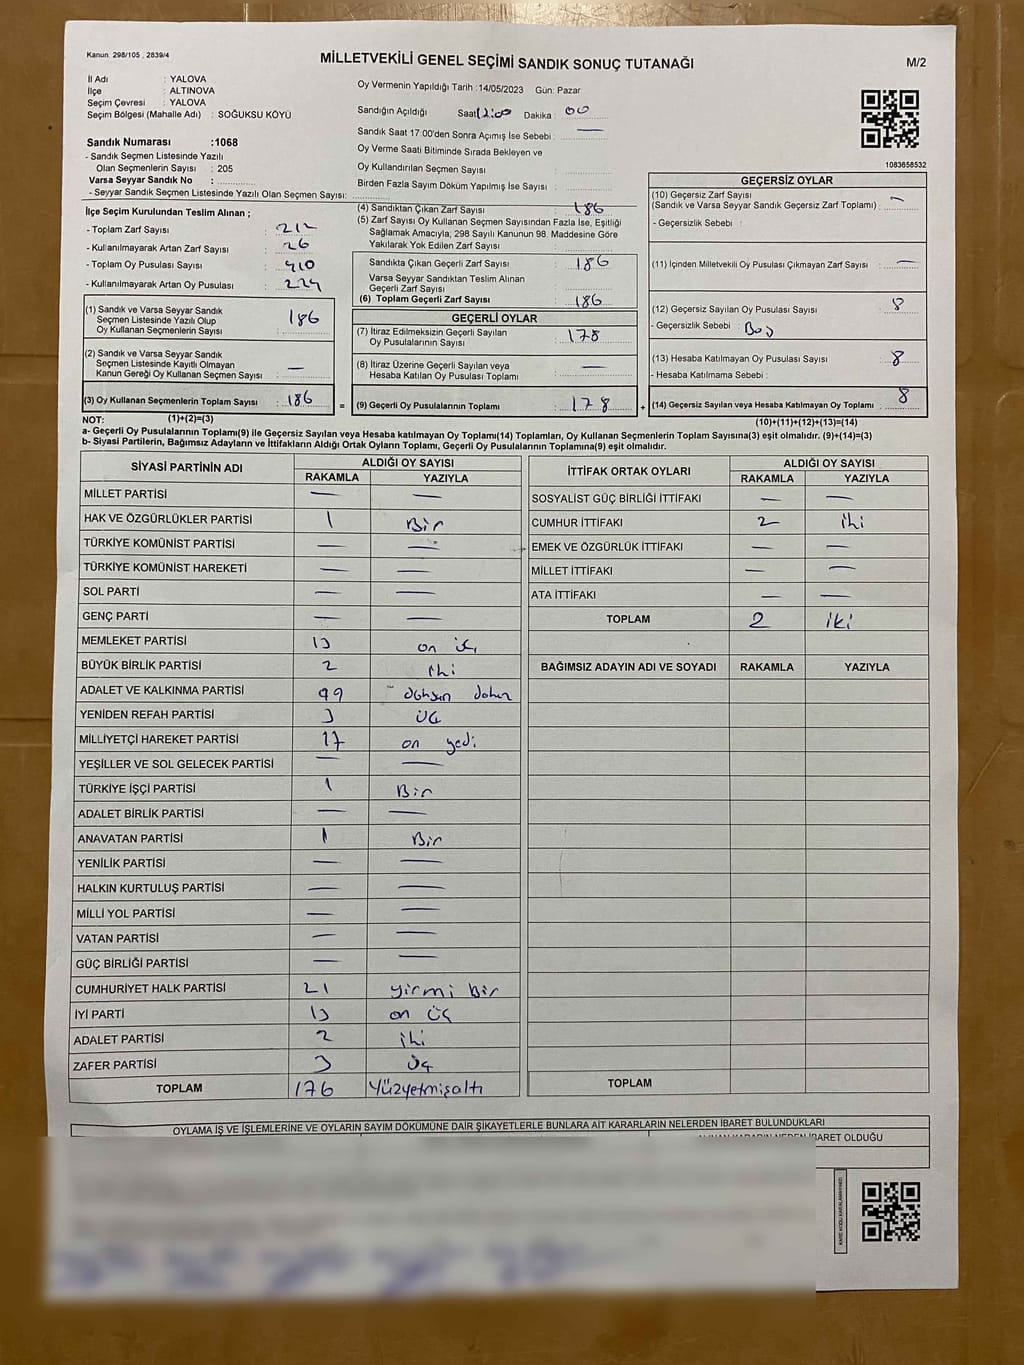 Kanun 298/105 , 2839/4
MİLLETVEKİLİ GENEL SEÇİMİ SANDIK SONUÇ TUTANAĞI
M/2
İl Adı : YALOVA
İlçe : ALTINOVA
Seçim Çevresi : YALOVA
Seçim Bölgesi (Mahalle Adı) : SOĞUKSU KÖYÜ
Sandık Numarası :1068
- Sandık Seçmen Listesinde Yazılı
Olan Seçmenlerin Sayısı : 205
Varsa Seyyar Sandık No :
- Seyyar Sandık Seçmen Listesinde Yazılı Olan Seçmen Sayısı:
İlçe Seçim Kurulundan Teslim Alınan ;
- Toplam Zarf Sayısı : 212
- Kullanılmayarak Artan Zarf Sayısı : 26
- Toplam Oy Pusulası Sayısı : 410
- Kullanılmayarak Artan Oy Pusulası : 224
(1) Sandık ve Varsa Seyyar Sandık
Seçmen Listesinde Yazılı Olup
Oy Kullanan Seçmenlerin Sayısı : 186
(2) Sandık ve Varsa Seyyar Sandık
Seçmen Listesinde Kayıtlı Olmayan
Kanun Gereği Oy Kullanan Seçmen Sayısı : —
(3) Oy Kullanan Seçmenlerin Toplam Sayısı : 186
Oy Vermenin Yapıldığı Tarih :14/05/2023 Gün: Pazar
Sandığın Açıldığı Saat 17:00 Dakika : 00
Sandık Saat 17:00'den Sonra Açımış İse Sebebi : —
Oy Verme Saati Bitiminde Sırada Bekleyen ve
Oy Kullandırılan Seçmen Sayısı :
Birden Fazla Sayım Döküm Yapılmış İse Sayısı :
(4) Sandıktan Çıkan Zarf Sayısı : 186
(5) Zarf Sayısı Oy Kullanan Seçmen Sayısından Fazla İse, Eşitliği
Sağlamak Amacıyla, 298 Sayılı Kanunun 98. Maddesine Göre
Yakılarak Yok Edilen Zarf Sayısı :
Sandıkta Çıkan Geçerli Zarf Sayısı : 186
Varsa Seyyar Sandıktan Teslim Alınan
Geçerli Zarf Sayısı :
(6) Toplam Geçerli Zarf Sayısı : 186
GEÇERLİ OYLAR
(7) İtiraz Edilmeksizin Geçerli Sayılan
Oy Pusulalarının Sayısı : 178
(8) İtiraz Üzerine Geçerli Sayılan veya
Hesaba Katılan Oy Pusulası Toplamı : —
= (9) Geçerli Oy Pusulalarının Toplamı : 178
1083658532
GEÇERSİZ OYLAR
(10) Geçersiz Zarf Sayısı
(Sandık ve Varsa Seyyar Sandık Geçersiz Zarf Toplamı) : —
- Geçersizlik Sebebi :
(11) İçinden Milletvekili Oy Pusulası Çıkmayan Zarf Sayısı : —
(12) Geçersiz Sayılan Oy Pusulası Sayısı : 8
- Geçersizlik Sebebi : Boş
(13) Hesaba Katılmayan Oy Pusulası Sayısı : 8
- Hesaba Katılmama Sebebi :
+ (14) Geçersiz Sayılan veya Hesaba Katılmayan Oy Toplamı : 8
NOT: (1)+(2)=(3) (10)+(11)+(12)+(13)=(14)
a- Geçerli Oy Pusulalarının Toplamı(9) ile Geçersiz Sayılan veya Hesaba katılmayan Oy Toplamı(14) Toplamları, Oy Kullanan Seçmenlerin Toplam Sayısına(3) eşit olmalıdır. (9)+(14)=(3)
b- Siyasi Partilerin, Bağımsız Adayların ve İttifakların Aldığı Ortak Oyların Toplamı, Geçerli Oy Pusulalarının Toplamına(9) eşit olmalıdır.
SİYASİ PARTİNİN ADI ALDIĞI OY SAYISI
RAKAMLA YAZIYLA
MİLLET PARTİSİ — —
HAK VE ÖZGÜRLÜKLER PARTİSİ 1 Bir
TÜRKİYE KOMÜNİST PARTİSİ — —
TÜRKİYE KOMÜNİST HAREKETİ — —
SOL PARTİ — —
GENÇ PARTİ — —
MEMLEKET PARTİSİ 13 on üç
BÜYÜK BİRLİK PARTİSİ 2 iki
ADALET VE KALKINMA PARTİSİ 99 doksan dokuz
YENİDEN REFAH PARTİSİ 3 üç
MİLLİYETÇİ HAREKET PARTİSİ 17 on yedi
YEŞİLLER VE SOL GELECEK PARTİSİ — —
TÜRKİYE İŞÇİ PARTİSİ 1 Bir
ADALET BİRLİK PARTİSİ — —
ANAVATAN PARTİSİ 1 Bir
YENİLİK PARTİSİ — —
HALKIN KURTULUŞ PARTİSİ — —
MİLLİ YOL PARTİSİ — —
VATAN PARTİSİ — —
GÜÇ BİRLİĞİ PARTİSİ — —
CUMHURİYET HALK PARTİSİ 21 yirmi bir
İYİ PARTİ 13 on üç
ADALET PARTİSİ 2 iki
ZAFER PARTİSİ 3 üç
TOPLAM 176 Yüzyetmişaltı
İTTİFAK ORTAK OYLARI ALDIĞI OY SAYISI
RAKAMLA YAZIYLA
SOSYALİST GÜÇ BİRLİĞİ İTTİFAKI — —
CUMHUR İTTİFAKI 2 iki
EMEK VE ÖZGÜRLÜK İTTİFAKI — —
MİLLET İTTİFAKI — —
ATA İTTİFAKI — —
TOPLAM 2 iki
BAĞIMSIZ ADAYIN ADI VE SOYADI RAKAMLA YAZIYLA
TOPLAM
OYLAMA İŞ VE İŞLEMLERİNE VE OYLARIN SAYIM DÖKÜMÜNE DAİR ŞİKAYETLERLE BUNLARA AİT KARARLARIN NELERDEN İBARET BULUNDUKLARI
İBARET OLDUĞU